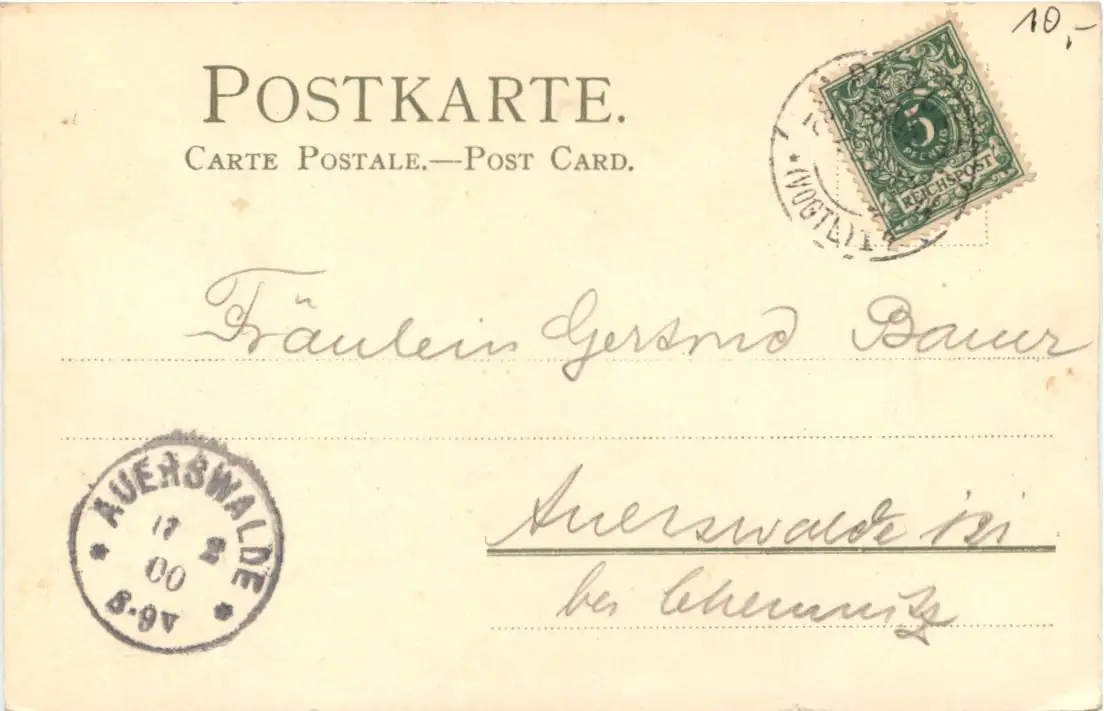 10,-
POSTKARTE.
CARTE POSTALE.—POST CARD.
5
PFENNIG
REICHSPOST
* (VOGTL) 1
Fräulein Gertrud Bauer
AUERSWALDE
17 2
00
8-9V
Auerswalde
bei Chemnitz